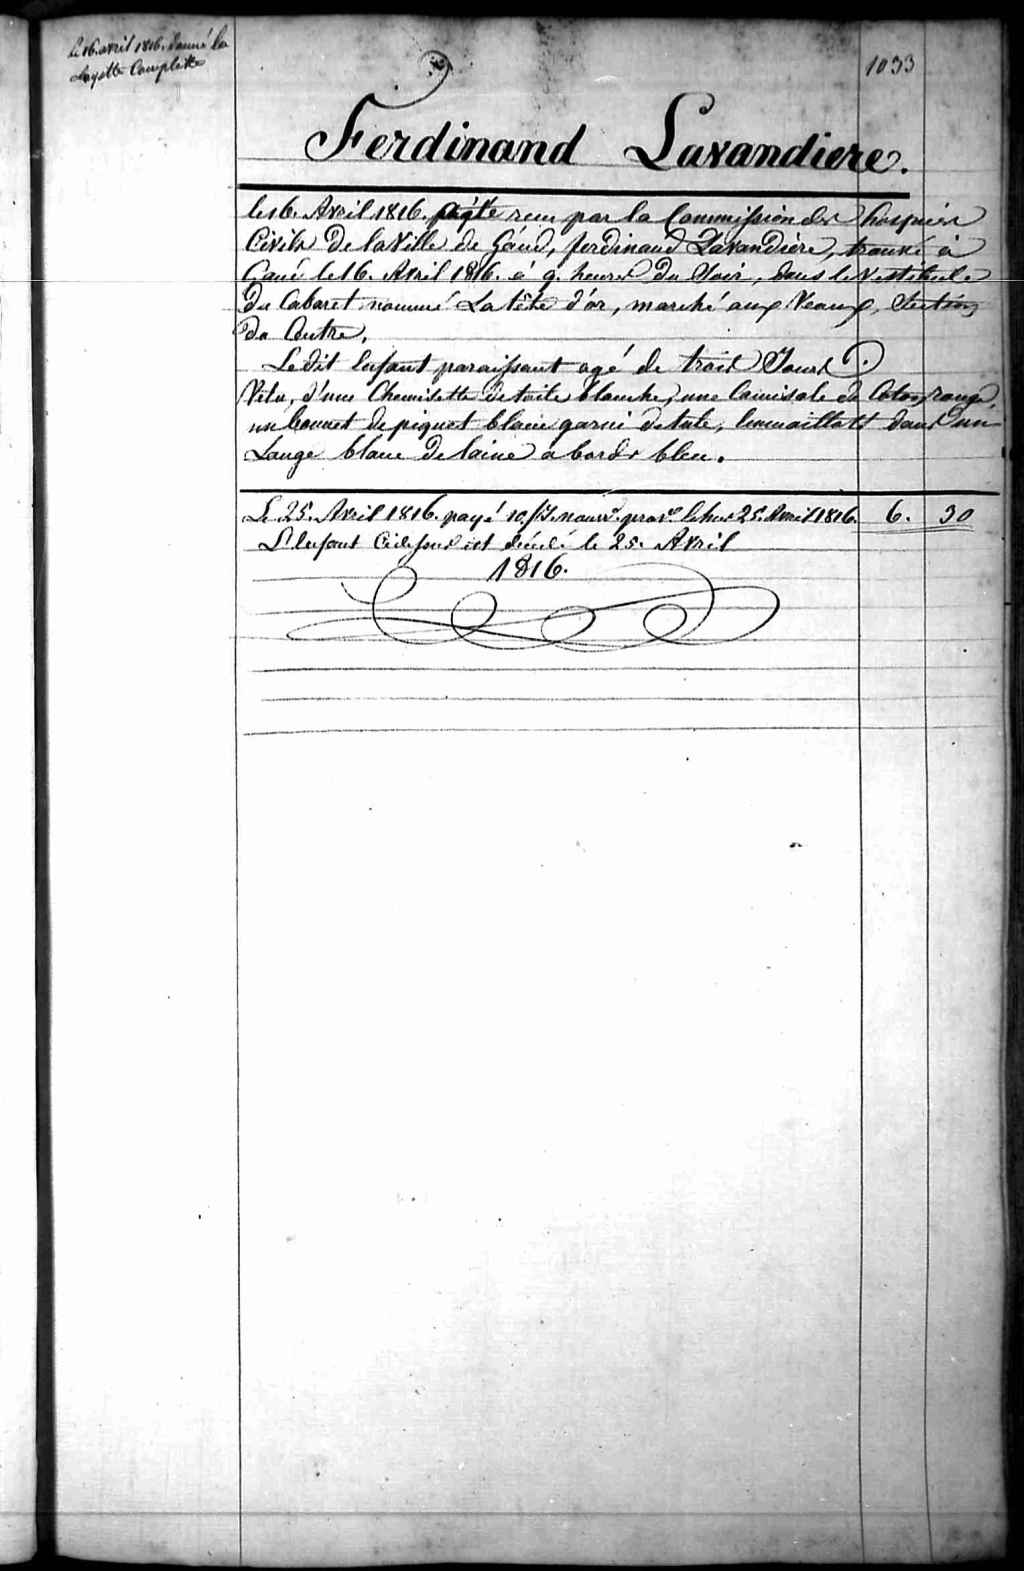 Le 16. avril 1816. donné la
Layette Complette
1033
Ferdinand Lavandiere.
le 16. Avril 1816. a été recu par la Commission des hospices
Civils De la Ville de Gand, ferdinand Lavandière, trouvé à
Gand le 16. Avril 1816. à 9. heures Du Soir, dans le Vestibule
Du Cabaret nommé La tête d'or, marché aux Veaux, Section
Du Centre.
Le dit Enfant paraissant agé de trois Jours.
Vêtu, d'une Chemisette de toile blanche, une Camisole de Coton rouge,
un bonnet de piquet blanc garni de tule, Emmaillotté dans un
Lange blanc De laine a bords bleu.
Le 25. Avril 1816. payé 10. Js. nourre. prove. Echus 25. Avril 1816. 6. 30
L'Enfant Cidessus est décédé le 25. Avril
1816.